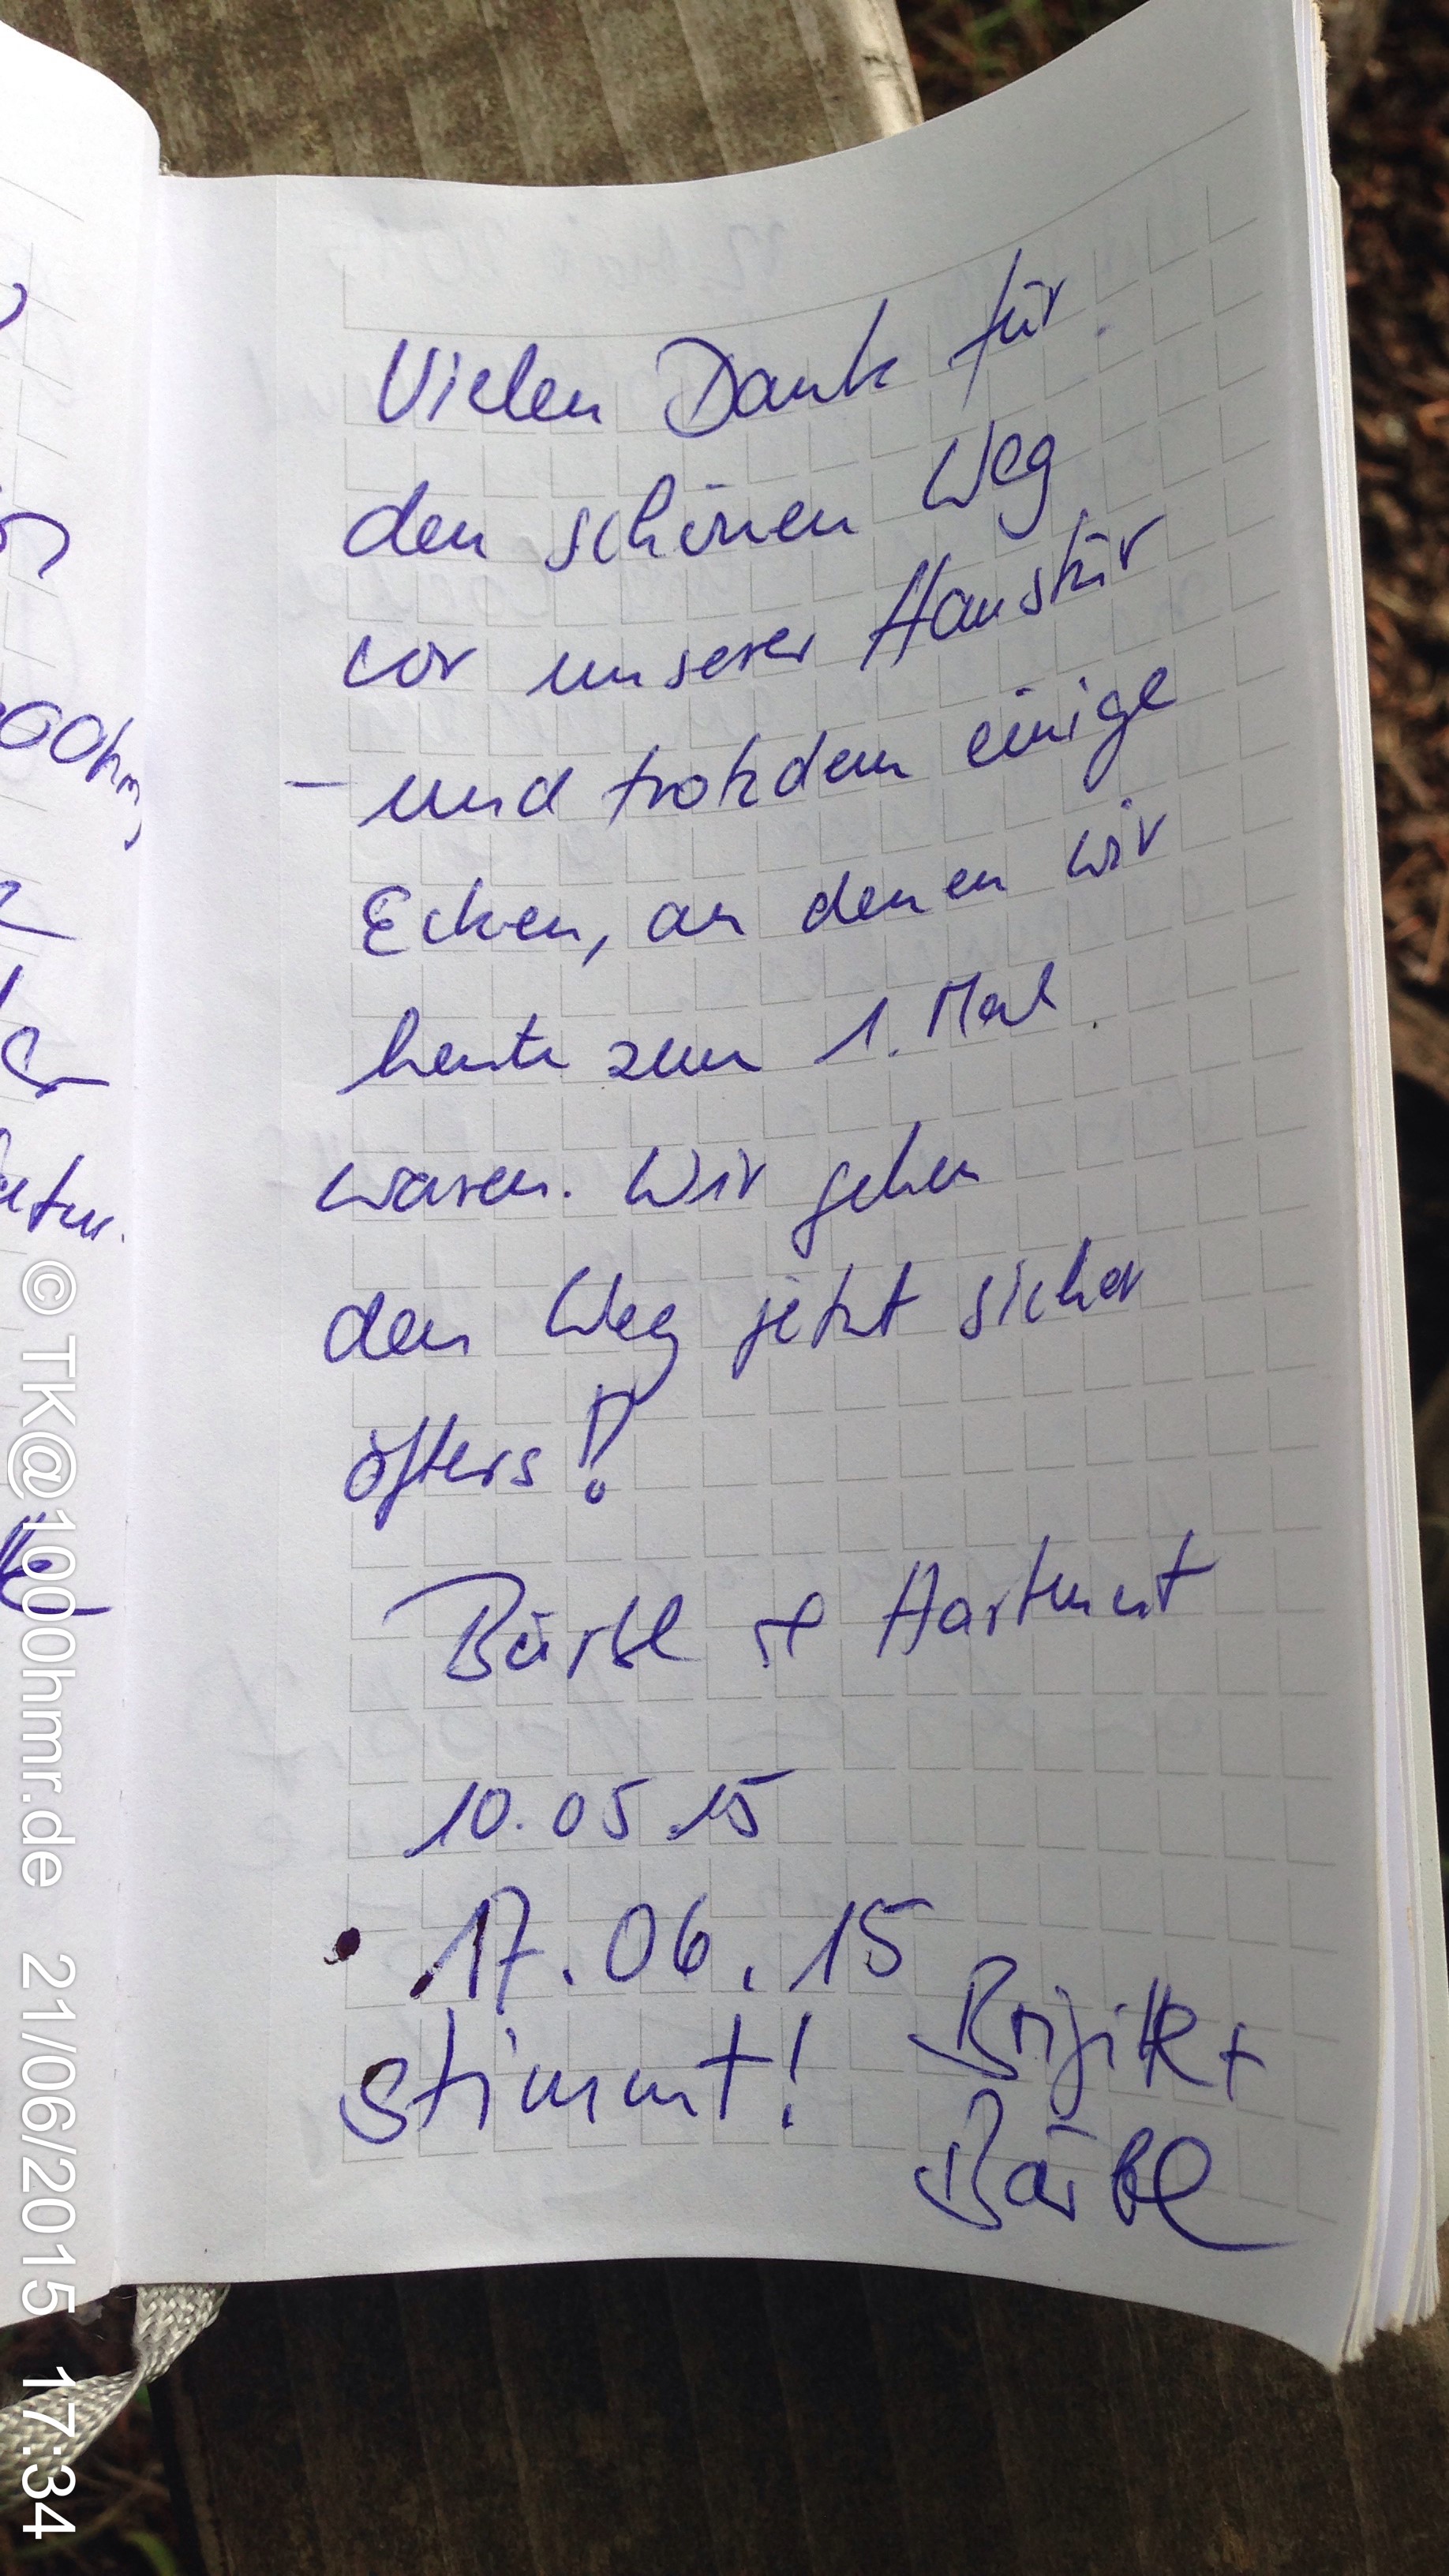 Vielen Dank für
den schönen Weg
vor unserer Haustür
– und trotzdem einige
Ecken, an denen wir
heute zum 1. Mal
waren. Wir gehen
den Weg jetzt sicher
öfters!
Bärbel + Hartmut
10.05.15
• 17.06.15
stimmt! Brigitte +
Bärbel
© TK@1000hmr.de 21/06/2015 17:34